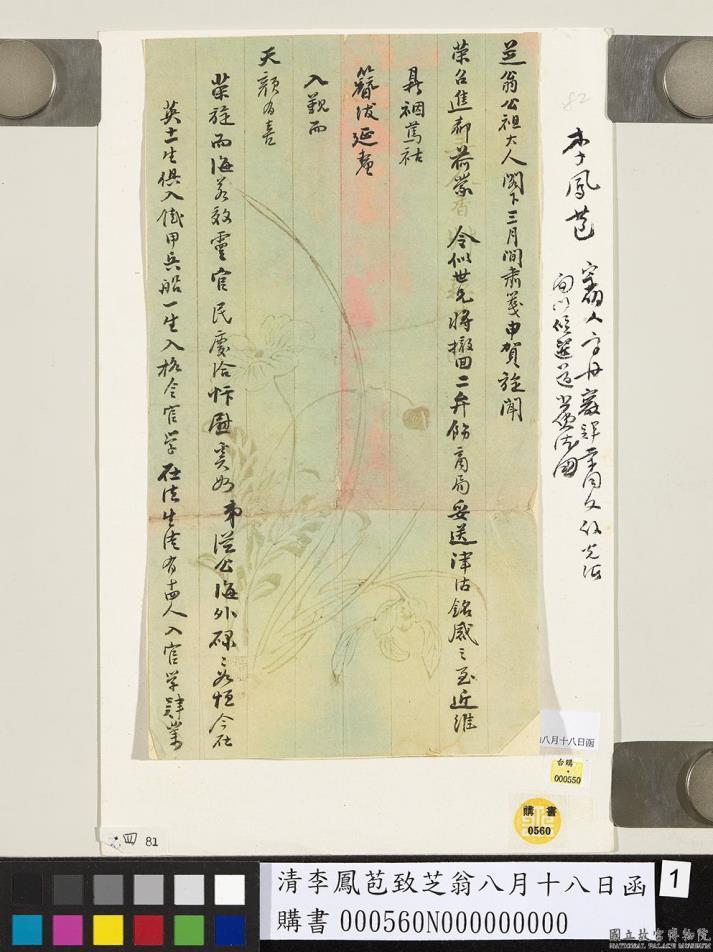 芝翁公祖大人閣下三月間肅箋申賀旋聞
榮召進都荷蒙 令似世兄將撤回二弁飭商局妥送津沽銘感之至近維
鼎裀篤祜
簪紱延釐
入覲而
天顏有喜
榮旋而海若效靈官民慶洽忭慰奚如弟從公海外碌碌如恒今在
英士生俱入鐵甲兵船一生入格令官學在法生徒有十四人入官學肄業
李鳳苞
八月十八日函
台購
000550
購書
0560
四 81
82
清李鳳苞致芝翁八月十八日函
購書 000560N000000000
1
國立故宮博物院
NATIONAL PALACE MUSEUM